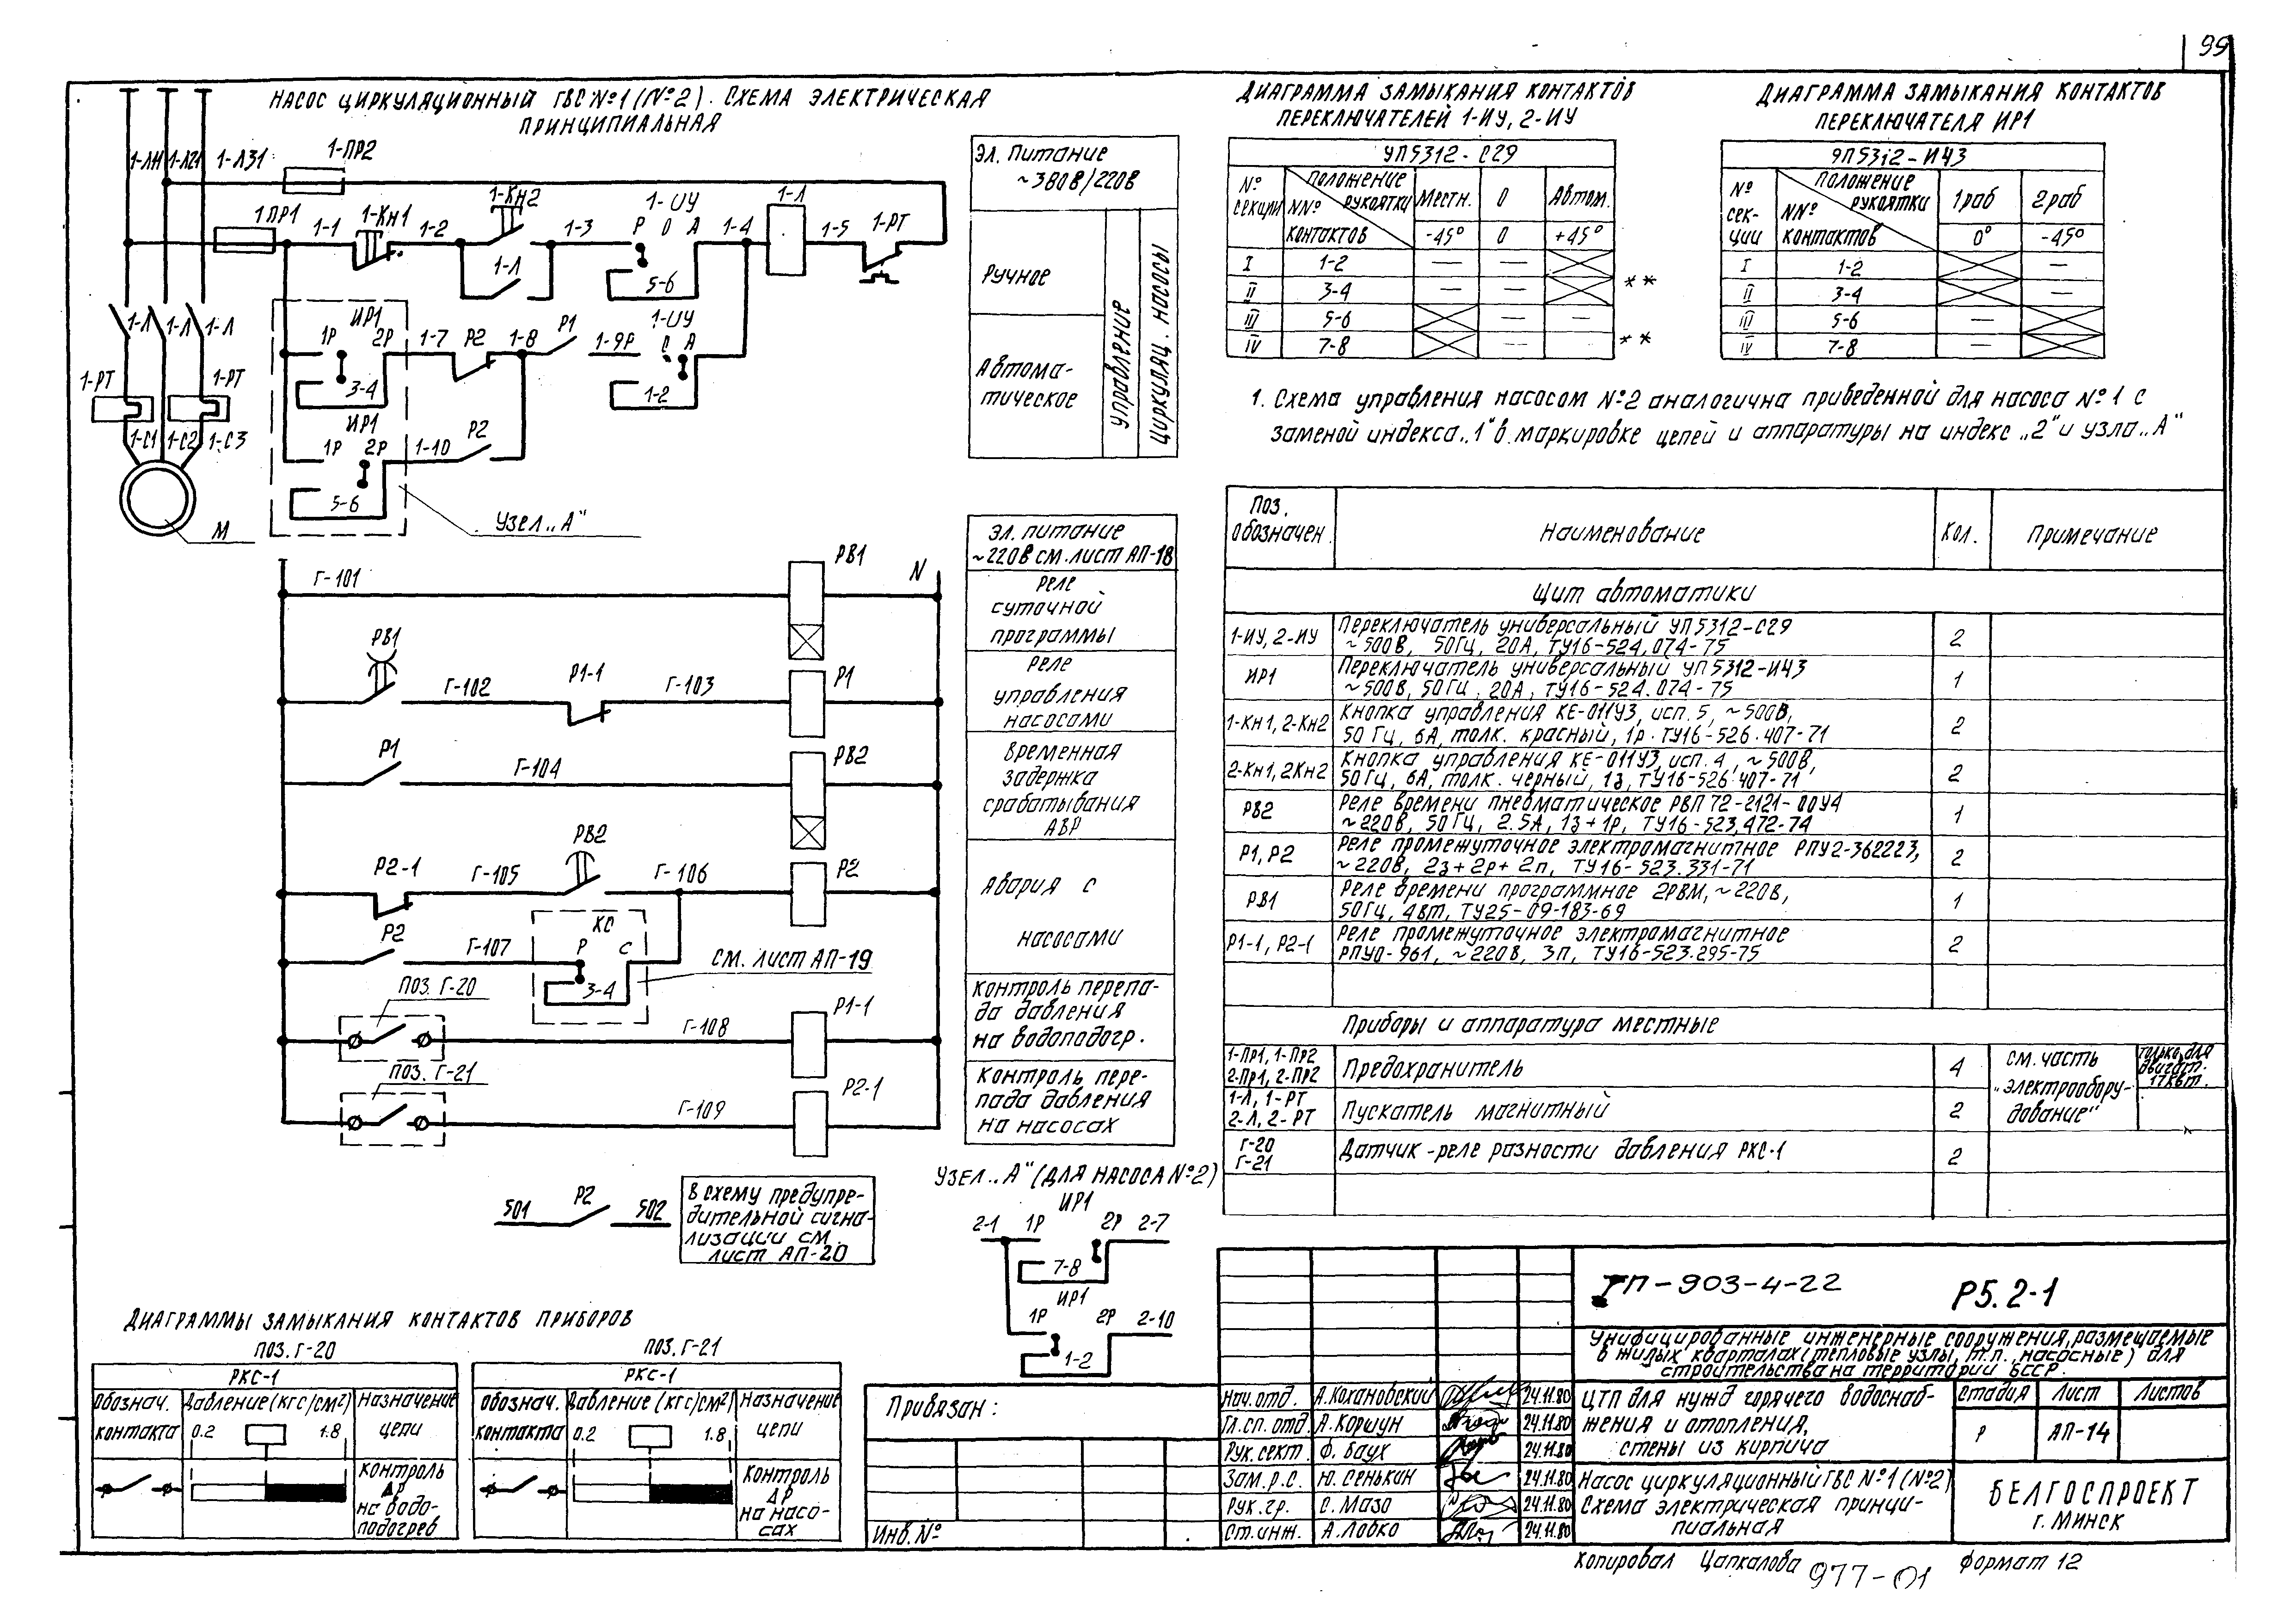 99
НАСОС ЦИРКУЛЯЦИОННЫЙ ГВС №1 (№2). СХЕМА ЭЛЕКТРИЧЕСКАЯ
ПРИНЦИПИАЛЬНАЯ
1-Л11 1-Л21 1-Л31
1-ПР2
1ПР1
1-1
1-КН1
1-2
1-КН2
1-Л
1-3
1-ИУ
Р О А
5-6
1-4
1-Л
1-5
1-РТ
1-Л 1-Л 1-Л
ИР1
1Р 2Р
3-4
1-7
Р2
1-8
Р1
1-9Р
1-ИУ
А
1-2
1-РТ 1-РТ
1-С1 1-С2 1-С3
ИР1
1Р 2Р
5-6
1-10
Р2
М
УЗЕЛ „А"
ЭЛ. ПИТАНИЕ
~380В/220В
РУЧНОЕ
АВТОМА-
ТИЧЕСКОЕ
УПРАВЛЕНИЕ
ЦИРКУЛЯЦ. НАСОСЫ
Г-101
РВ1
N
РВ1
Г-102
Р1-1
Г-103
Р1
Р1
Г-104
РВ2
Р2-1
Г-105
РВ2
Г-106
Р2
Р2
Г-107
КС
Р С
3-4
СМ. ЛИСТ АП-19
ПОЗ. Г-20
Г-108
Р1-1
ПОЗ. Г-21
Г-109
Р2-1
ЭЛ. ПИТАНИЕ
~220В СМ. ЛИСТ АП-18
РЕЛЕ
СУТОЧНОЙ
ПРОГРАММЫ
РЕЛЕ
УПРАВЛЕНИЯ
НАСОСАМИ
ВРЕМЕННАЯ
ЗАДЕРЖКА
СРАБАТЫВАНИЯ
АВР
АВАРИЯ С
НАСОСАМИ
КОНТРОЛЬ ПЕРЕПА-
ДА ДАВЛЕНИЯ
НА ВОДОПОДОГР.
КОНТРОЛЬ ПЕРЕ-
ПАДА ДАВЛЕНИЯ
НА НАСОСАХ
501 Р2 502
В СХЕМУ ПРЕДУПРЕ-
ДИТЕЛЬНОЙ СИГНА-
ЛИЗАЦИИ СМ.
ЛИСТ АП-20
УЗЕЛ „А" (ДЛЯ НАСОСА №2)
ИР1
2-1 1Р 2Р 2-7
7-8
ИР1
1Р 2Р 2-10
1-2
ДИАГРАММЫ ЗАМЫКАНИЯ КОНТАКТОВ ПРИБОРОВ
ПОЗ. Г-20
РКС-1
ОБОЗНАЧ. КОНТАКТА
ДАВЛЕНИЕ (КГС/СМ²)
НАЗНАЧЕНИЕ ЦЕПИ
0.2 1.8
КОНТРОЛЬ
ΔР
НА ВОДО-
ПОДОГРЕВ
ПОЗ. Г-21
РКС-1
ОБОЗНАЧ. КОНТАКТА
ДАВЛЕНИЕ (КГС/СМ²)
НАЗНАЧЕНИЕ ЦЕПИ
0.2 1.8
КОНТРОЛЬ
ΔР
НА НАСО-
САХ
ДИАГРАММА ЗАМЫКАНИЯ КОНТАКТОВ
ПЕРЕКЛЮЧАТЕЛЕЙ 1-ИУ, 2-ИУ
УП5312-С29
№ СЕКЦИИ
ПОЛОЖЕНИЕ РУКОЯТКИ
N№ КОНТАКТОВ
МЕСТН. О АВТОМ.
-45° 0 +45°
I 1-2 — —
II 3-4 — — **
III 5-6 — —
IV 7-8 — — **
ДИАГРАММА ЗАМЫКАНИЯ КОНТАКТОВ
ПЕРЕКЛЮЧАТЕЛЯ ИР1
УП5312-И43
№ СЕК-ЦИИ
ПОЛОЖЕНИЕ РУКОЯТКИ
N№ КОНТАКТОВ
1раб 2раб
0° -45°
I 1-2 —
II 3-4 —
III 5-6 —
IV 7-8 —
1. Схема управления насосом №2 аналогична приведенной для насоса №1 с
заменой индекса „1" в маркировке цепей и аппаратуры на индекс „2" и узла „А"
ПОЗ. ОБОЗНАЧЕН. НАИМЕНОВАНИЕ КОЛ. ПРИМЕЧАНИЕ
Щит автоматики
1-ИУ, 2-ИУ Переключатель универсальный УП5312-С29 2
~500В, 50Гц, 20А, ТУ16-524.074-75
ИР1 Переключатель универсальный УП5312-И43 1
~500В, 50Гц, 20А, ТУ16-524.074-75
1-КН1, 2-КН2 Кнопка управления КЕ-011У3, исп. 5, ~500В, 2
50 Гц, 6А, толк. красный, 1р. ТУ16-526.407-71
2-КН1, 2КН2 Кнопка управления КЕ-011У3, исп. 4, ~500В, 2
50Гц, 6А, толк. черный, 1з, ТУ16-526.407-71
РВ2 Реле времени пневматическое РВП 72-2121-00У4 1
~220В, 50Гц, 2.5А, 1з+1р, ТУ16-523.472-74
Р1, Р2 Реле промежуточное электромагнитное РПУ2-362223, 2
~220В, 2з+2р+2п, ТУ16-523.331-71
РВ1 Реле времени программное 2РВМ, ~220В, 1
50Гц, 4Вт, ТУ25-09-183-69
Р1-1, Р2-1 Реле промежуточное электромагнитное 2
РПУ0-961, ~220В, 3п, ТУ16-523.295-75
Приборы и аппаратура местные
1-ПР1, 1-ПР2
2-ПР1, 2-ПР2 Предохранитель 4
1-Л, 1-РТ
2-Л, 2-РТ Пускатель магнитный 2
см. часть
„электрообору-
дование"
только для
двигат.
17кВт.
Г-20
Г-21 Датчик-реле разности давления РКС-1 2
ТП-903-4-22 Р5.2-1
Унифицированные инженерные сооружения, размещаемые
в жилых кварталах (тепловые узлы, т.п., насосные) для
строительства на территории БССР.
ЦТП для нужд горячего водоснаб-
жения и отопления,
стены из кирпича
Стадия Лист Листов
Р АП-14
Насос циркуляционный ГВС №1 (№2)
Схема электрическая принци-
пиальная
БЕЛГОСПРОЕКТ
г. МИНСК
Привязан:
Инв. №
Нач. отд. А. Кохановский 24.11.80
Гл. сп. отд. А. Коршун 24.11.80
Рук. сект. Ф. Баух 24.11.80
Зам. р.с. Ю. Сенькин 24.11.80
Рук. гр. С. Мазо 24.11.80
Ст. инж. А. Лобко 24.11.80
Копировал Цапкалова 977-01 Формат 12